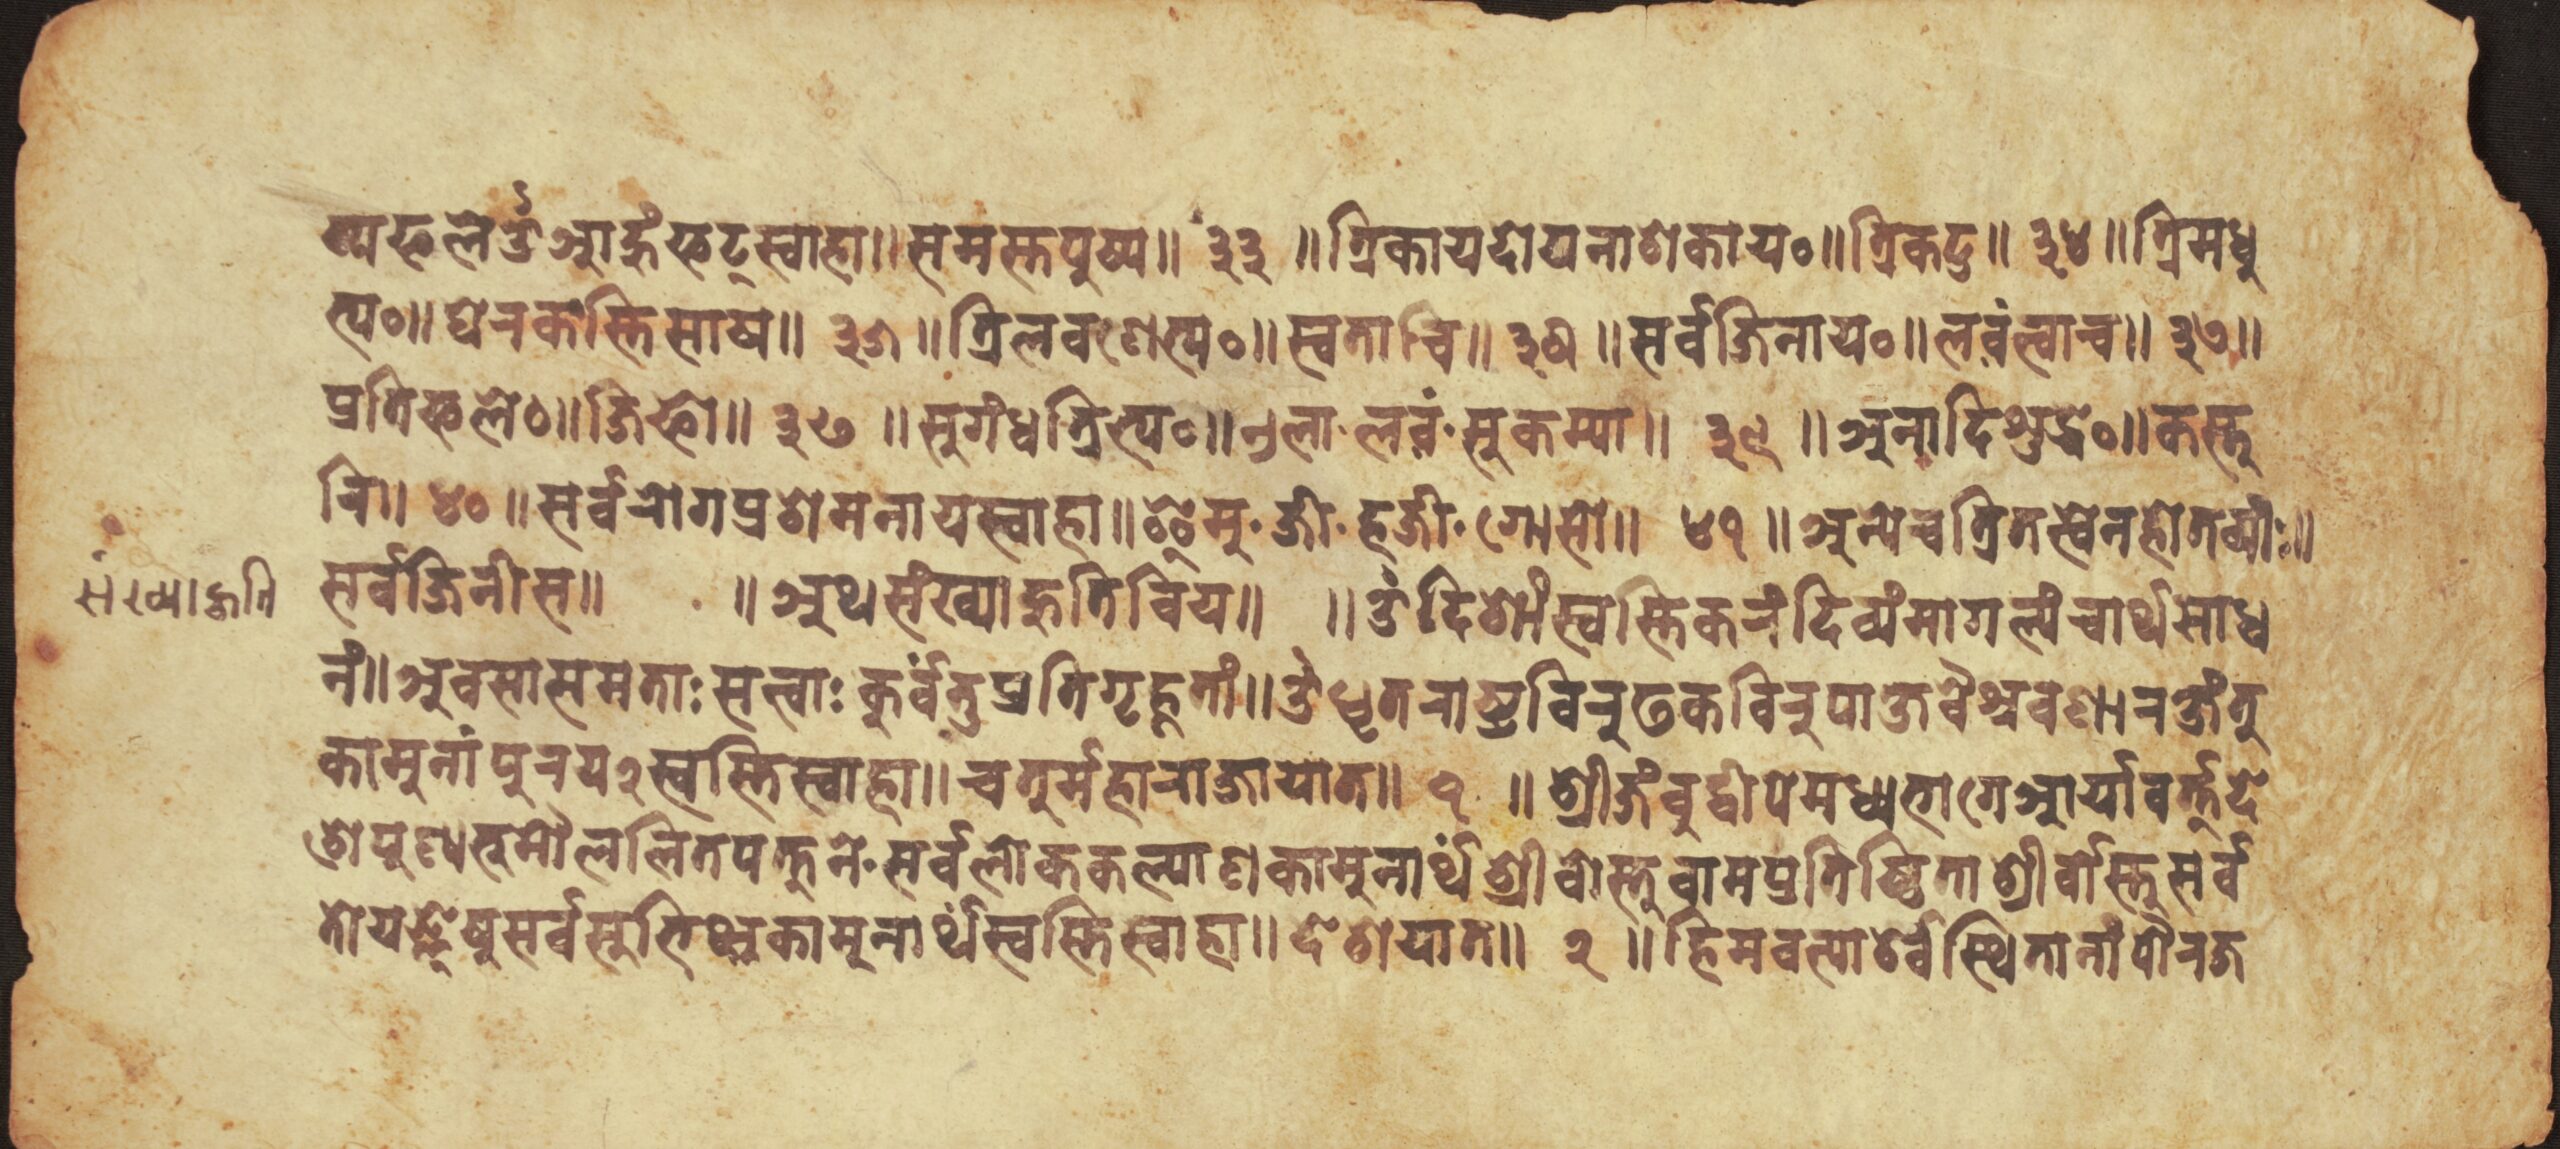 ष्पफले ॐ आः हुं फट् स्वाहा ॥ समस्तपुष्प ॥ ३३ ॥ त्रिकायदोषनाशकाय० ॥ त्रिकटु ॥ ३४ ॥ त्रिमधु
त्य० ॥ घेनकस्तिसाष ॥ ३५ ॥ त्रिलवणेत्य० ॥ स्वताचि ॥ ३६ ॥ सर्वजिनाय० ॥ लवंत्वाच ॥ ३७ ॥
प्रतिफले० ॥ जिफो ॥ ३८ ॥ सुगंधत्रित्य० ॥ एला· लवं· सुकम्या ॥ ३९ ॥ अनादिशुद्धे० ॥ कस्तु
रि ॥ ४० ॥ सर्वरोगप्रशमनाय स्वाहा ॥ मु· जी· हजी· गोसो ॥ ४१ ॥ अन्येच त्रितत्त्वेन होतव्याः ॥
संख्याहुति
सर्वजिनीस ॥ ॥ अथ संख्याहुतिविय ॥ ॥ ॐ दिशां स्वस्तिकरं दिव्यं मागल्यं चार्थसाध
नं ॥ अवसासमताः सत्वाः कुर्वंतु प्रतिगृह्नतां ॥ ॐ धृतराष्ट्रविरुढकविरुपाक्षवैश्रवणारक्षंतु
कामुनां पुरय २ स्वस्ति स्वाहा ॥ चतुर्महाराजायात ॥ १ ॥ श्रीजंबुद्वीपे मध्यभागे आर्यावर्त्तदे
शे पुण्यभुमौ ललितपत्तने· सर्वलोककल्याणकामुनार्थं श्रीवोस्तु वामप्रतिष्ठिता श्रीर्वोस्तु सर्व
तो यज्ञेषु सर्वसुभिक्षकामुनार्थं स्वस्ति स्वाहा ॥ देशयात ॥ २ ॥ हिमवत्पार्श्वे स्थितानां पौरज